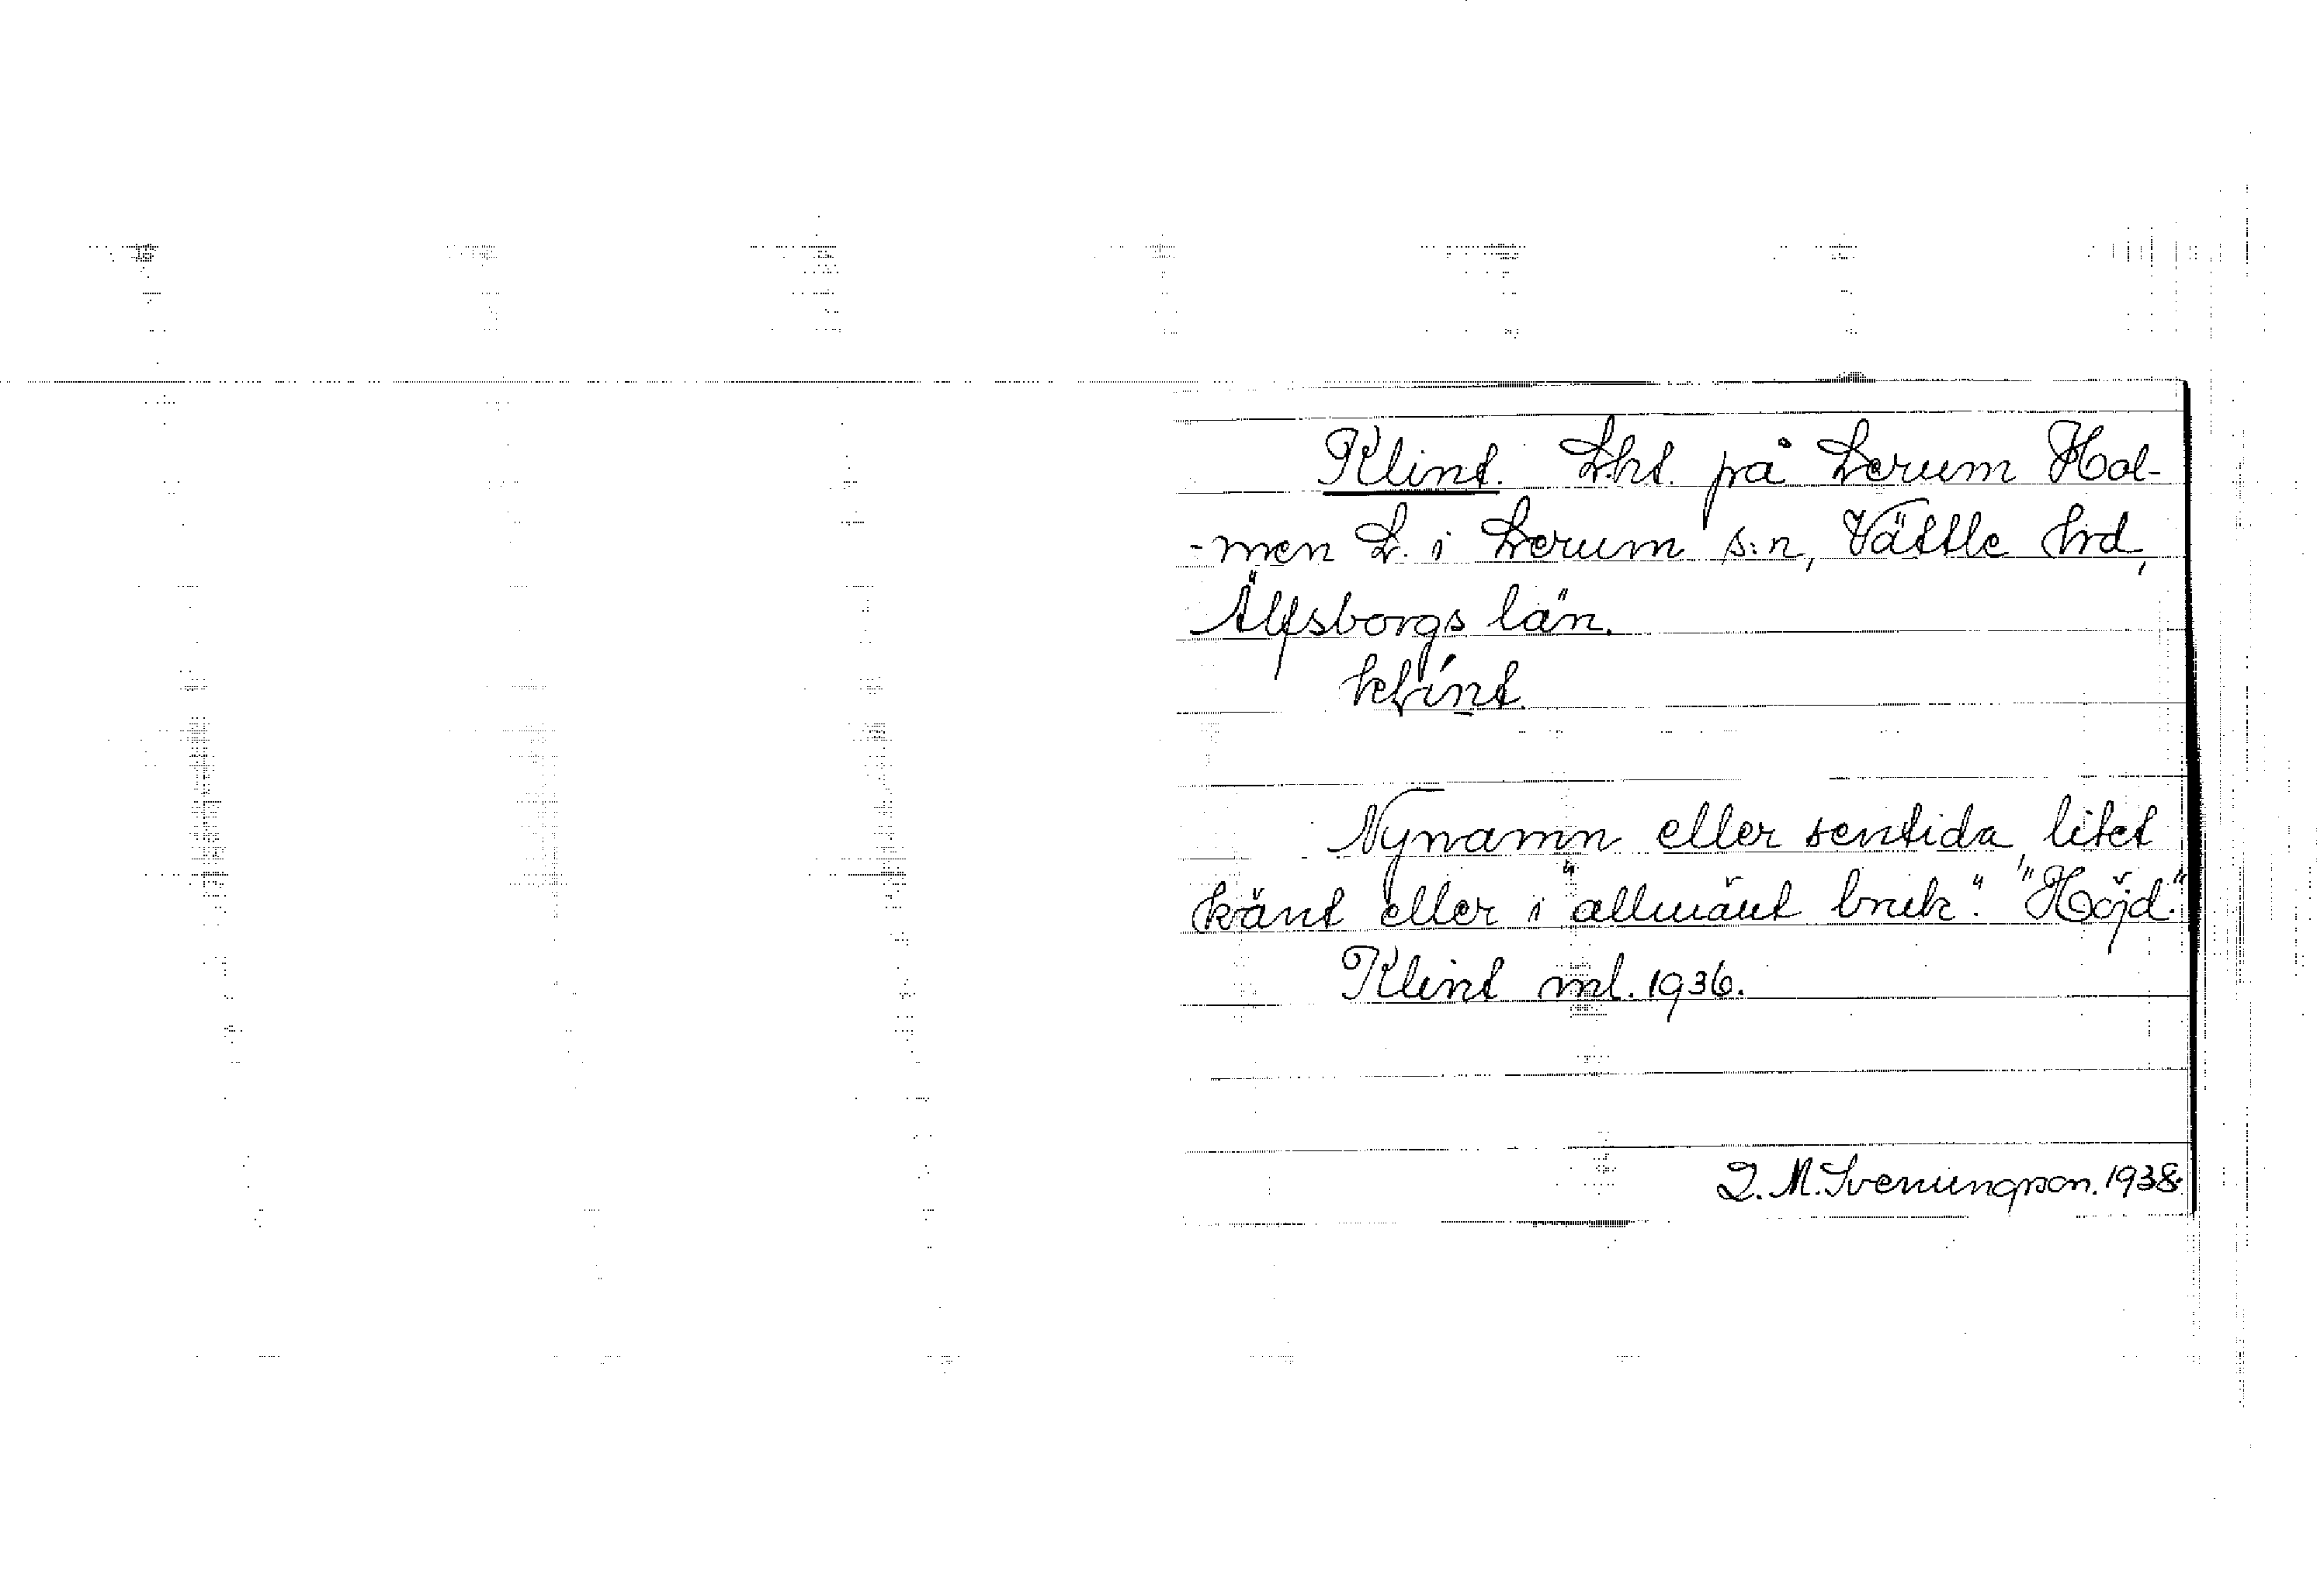 Klint. Lht. på Lerum Hol-
-men L. i Lerum s:n, Vättle hrd,
Älfsborgs län.
klint.
Nynamn eller sentida, litet
känt eller i "allmänt bruk". "Höjd."
Klint ml. 1936.
J. M. Sveningson. 1938.